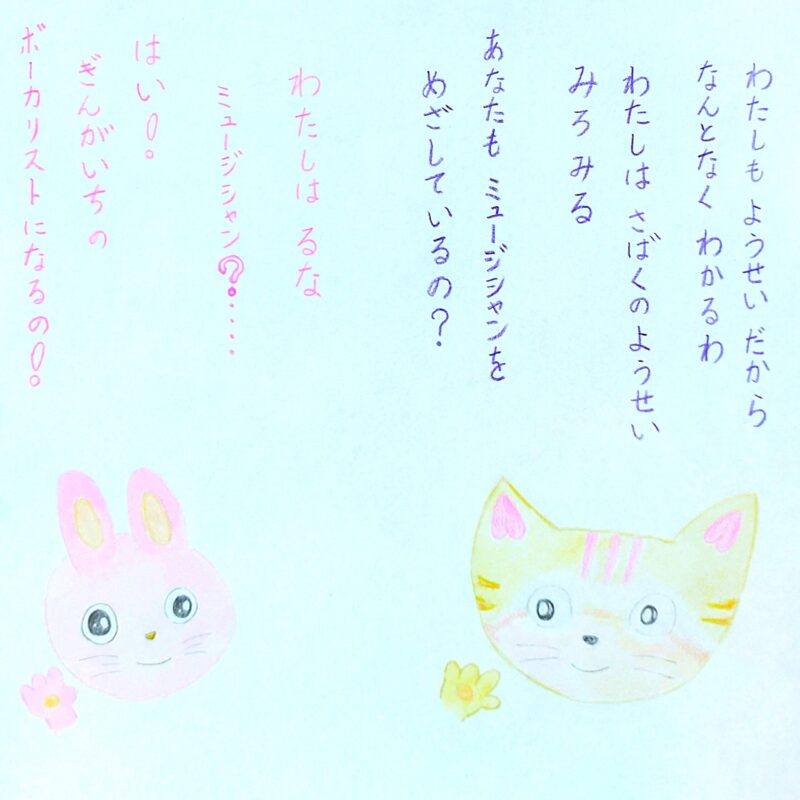 わたしも ようせい だから
なんとなく わかるわ
わたしは さばくのようせい
みろみる
あなたも ミュージシャンを
めざしているの?
わたしは るな
ミュージシャン?・・・・・
はい!。
ぎんがいちの
ボーカリストになるの!。